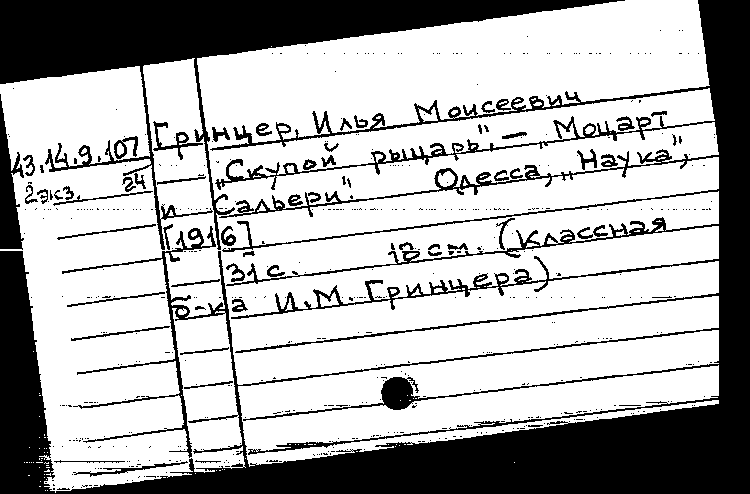 43.14.9.107
24
2 экз.
Гринцер, Илья Моисеевич
„Скупой рыцарь". — „Моцарт
и Сальери". Одесса, „Наука",
[1916].
31 с. 18 см. (Классная
б-ка И.М. Гринцера).